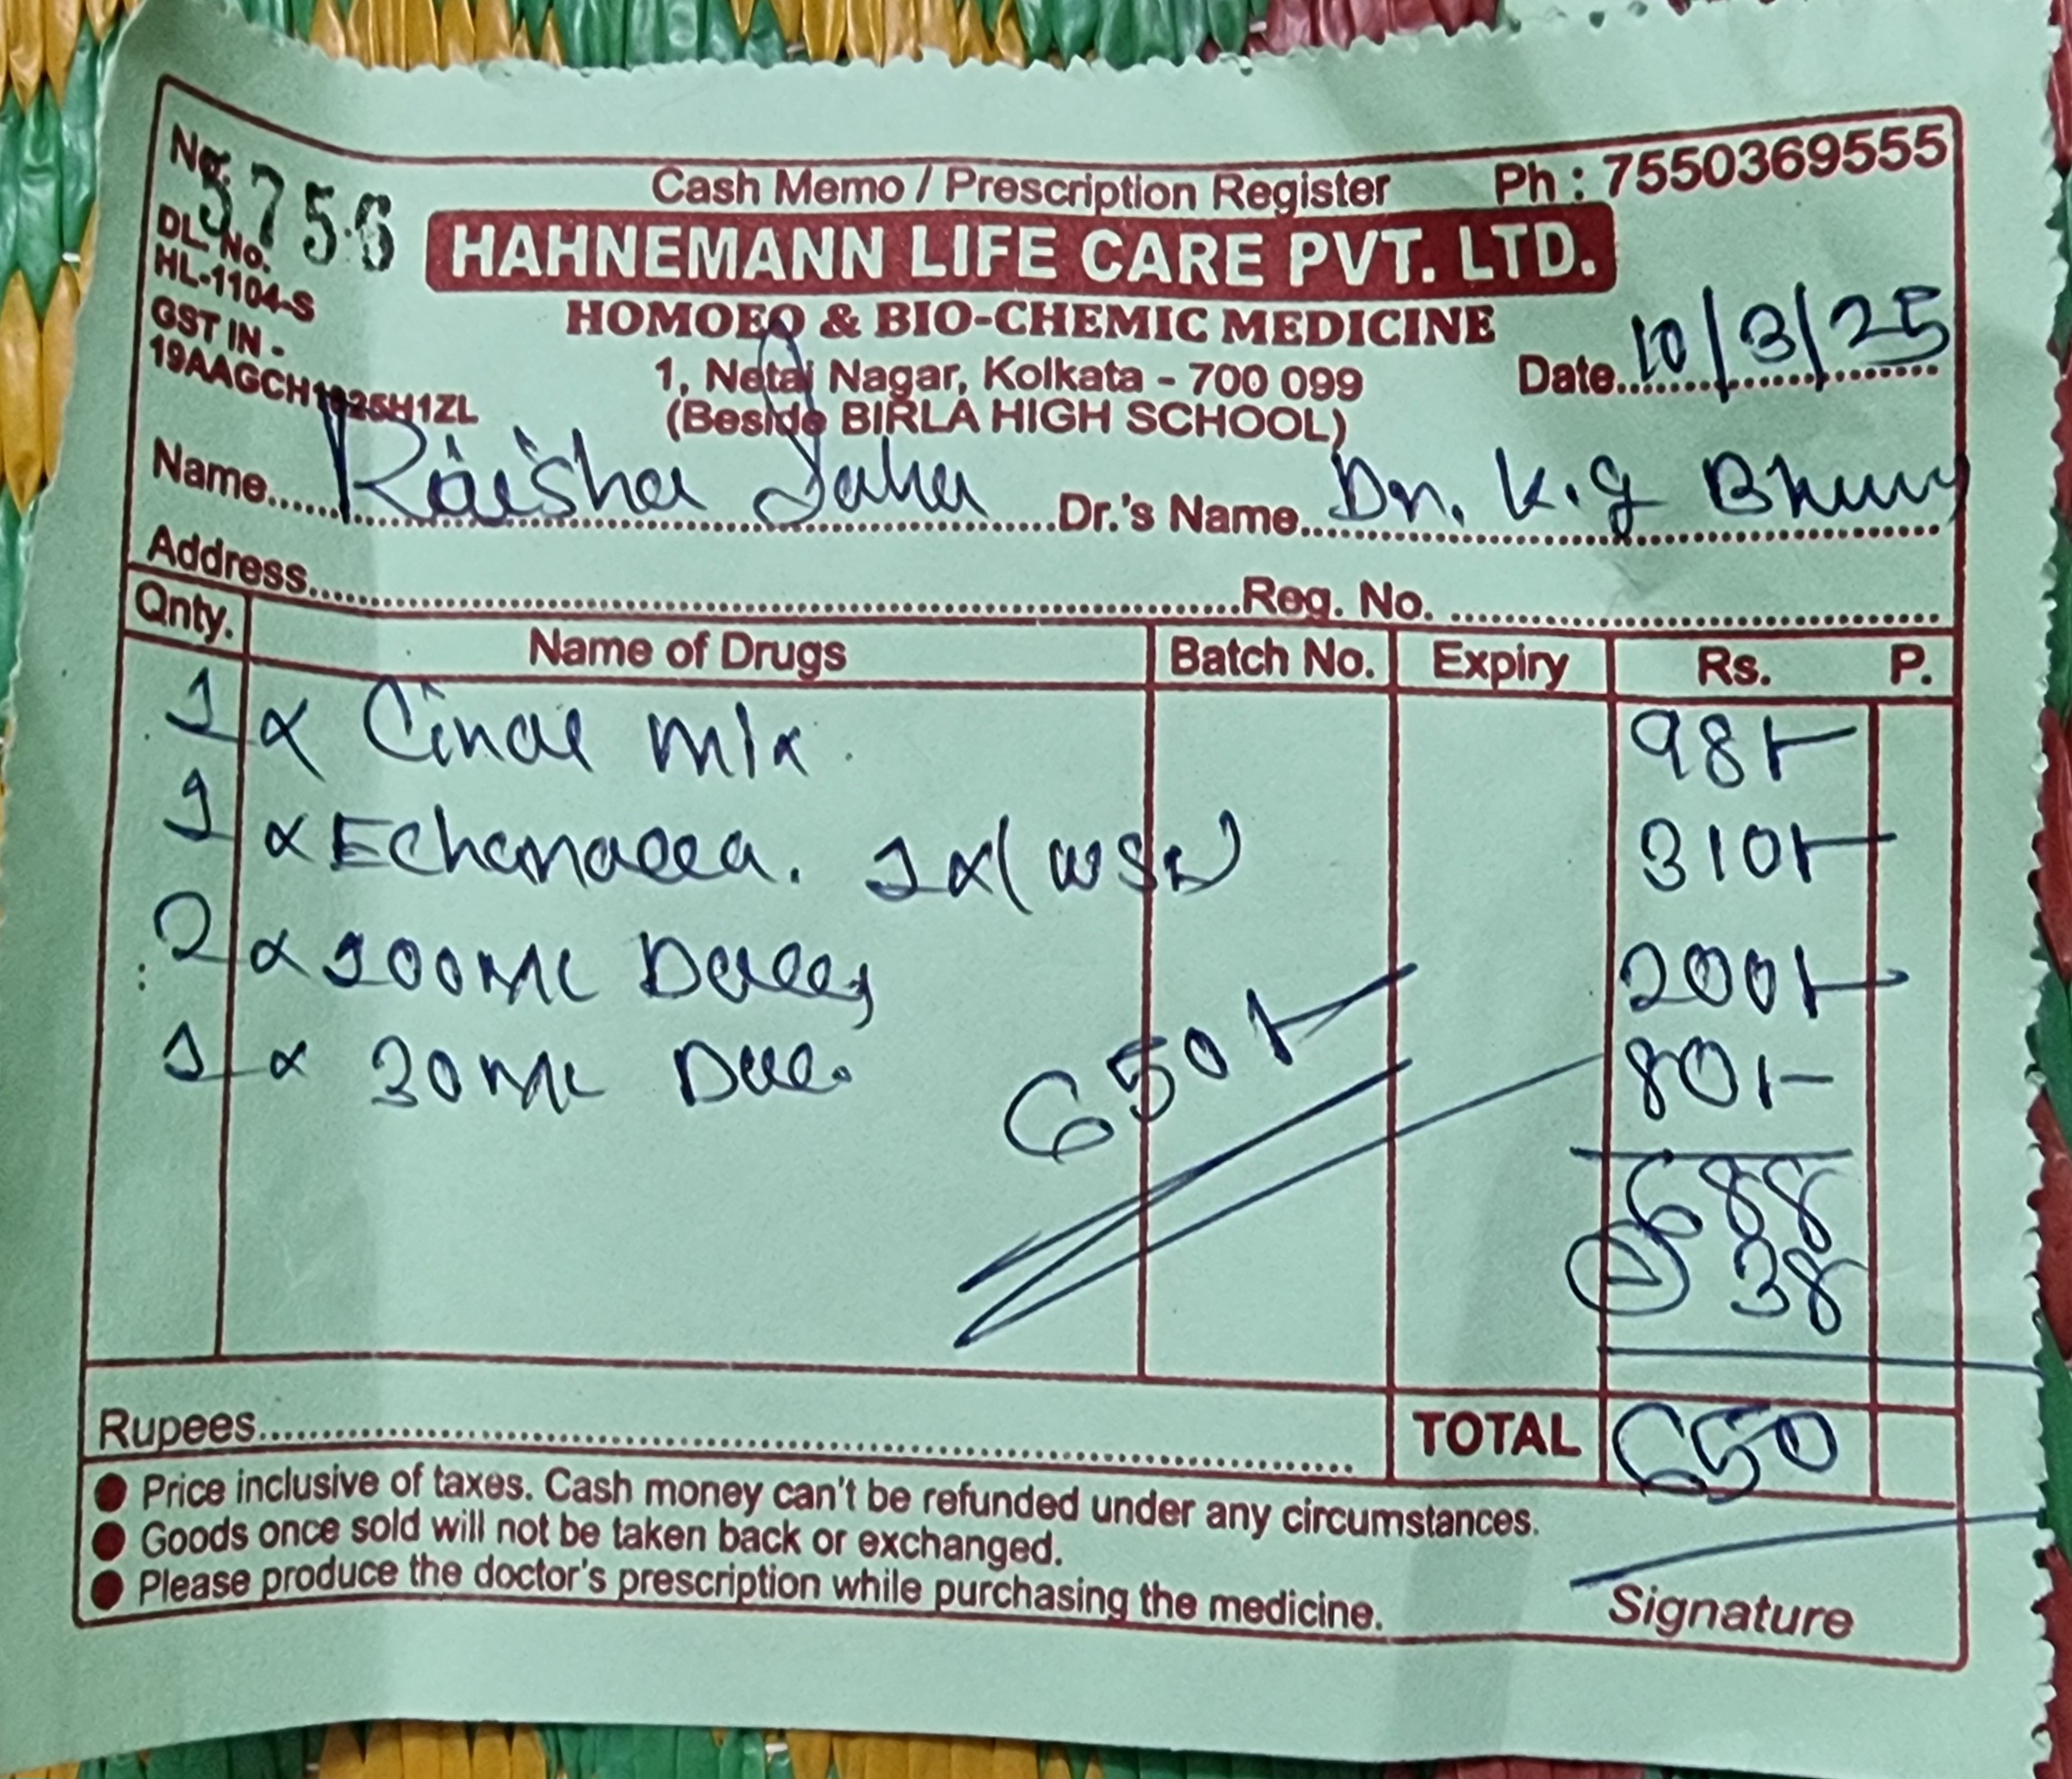 No. 5756
Cash Memo / Prescription Register Ph : 7550369555
HAHNEMANN LIFE CARE PVT. LTD.
DL. No.
HL-1104-S
HOMOEO & BIO-CHEMIC MEDICINE
GST IN -
1, Netaji Nagar, Kolkata - 700 099
Date 10/3/25
(Beside BIRLA HIGH SCHOOL)
Name Raisha Dr.'s Name Dr. K.G
Address Reg. No.
Qnty. Name of Drugs Batch No. Expiry Rs. P.
1 x Cina mix 98/-
1 x Echenacea. 1x ( 310/-
2 x 100 ml 200/-
1 x 30 ml 80/-
650/-
688
- 38
Rupees TOTAL 650
Price inclusive of taxes. Cash money can't be refunded under any circumstances.
Goods once sold will not be taken back or exchanged.
Please produce the doctor's prescription while purchasing the medicine.
Signature